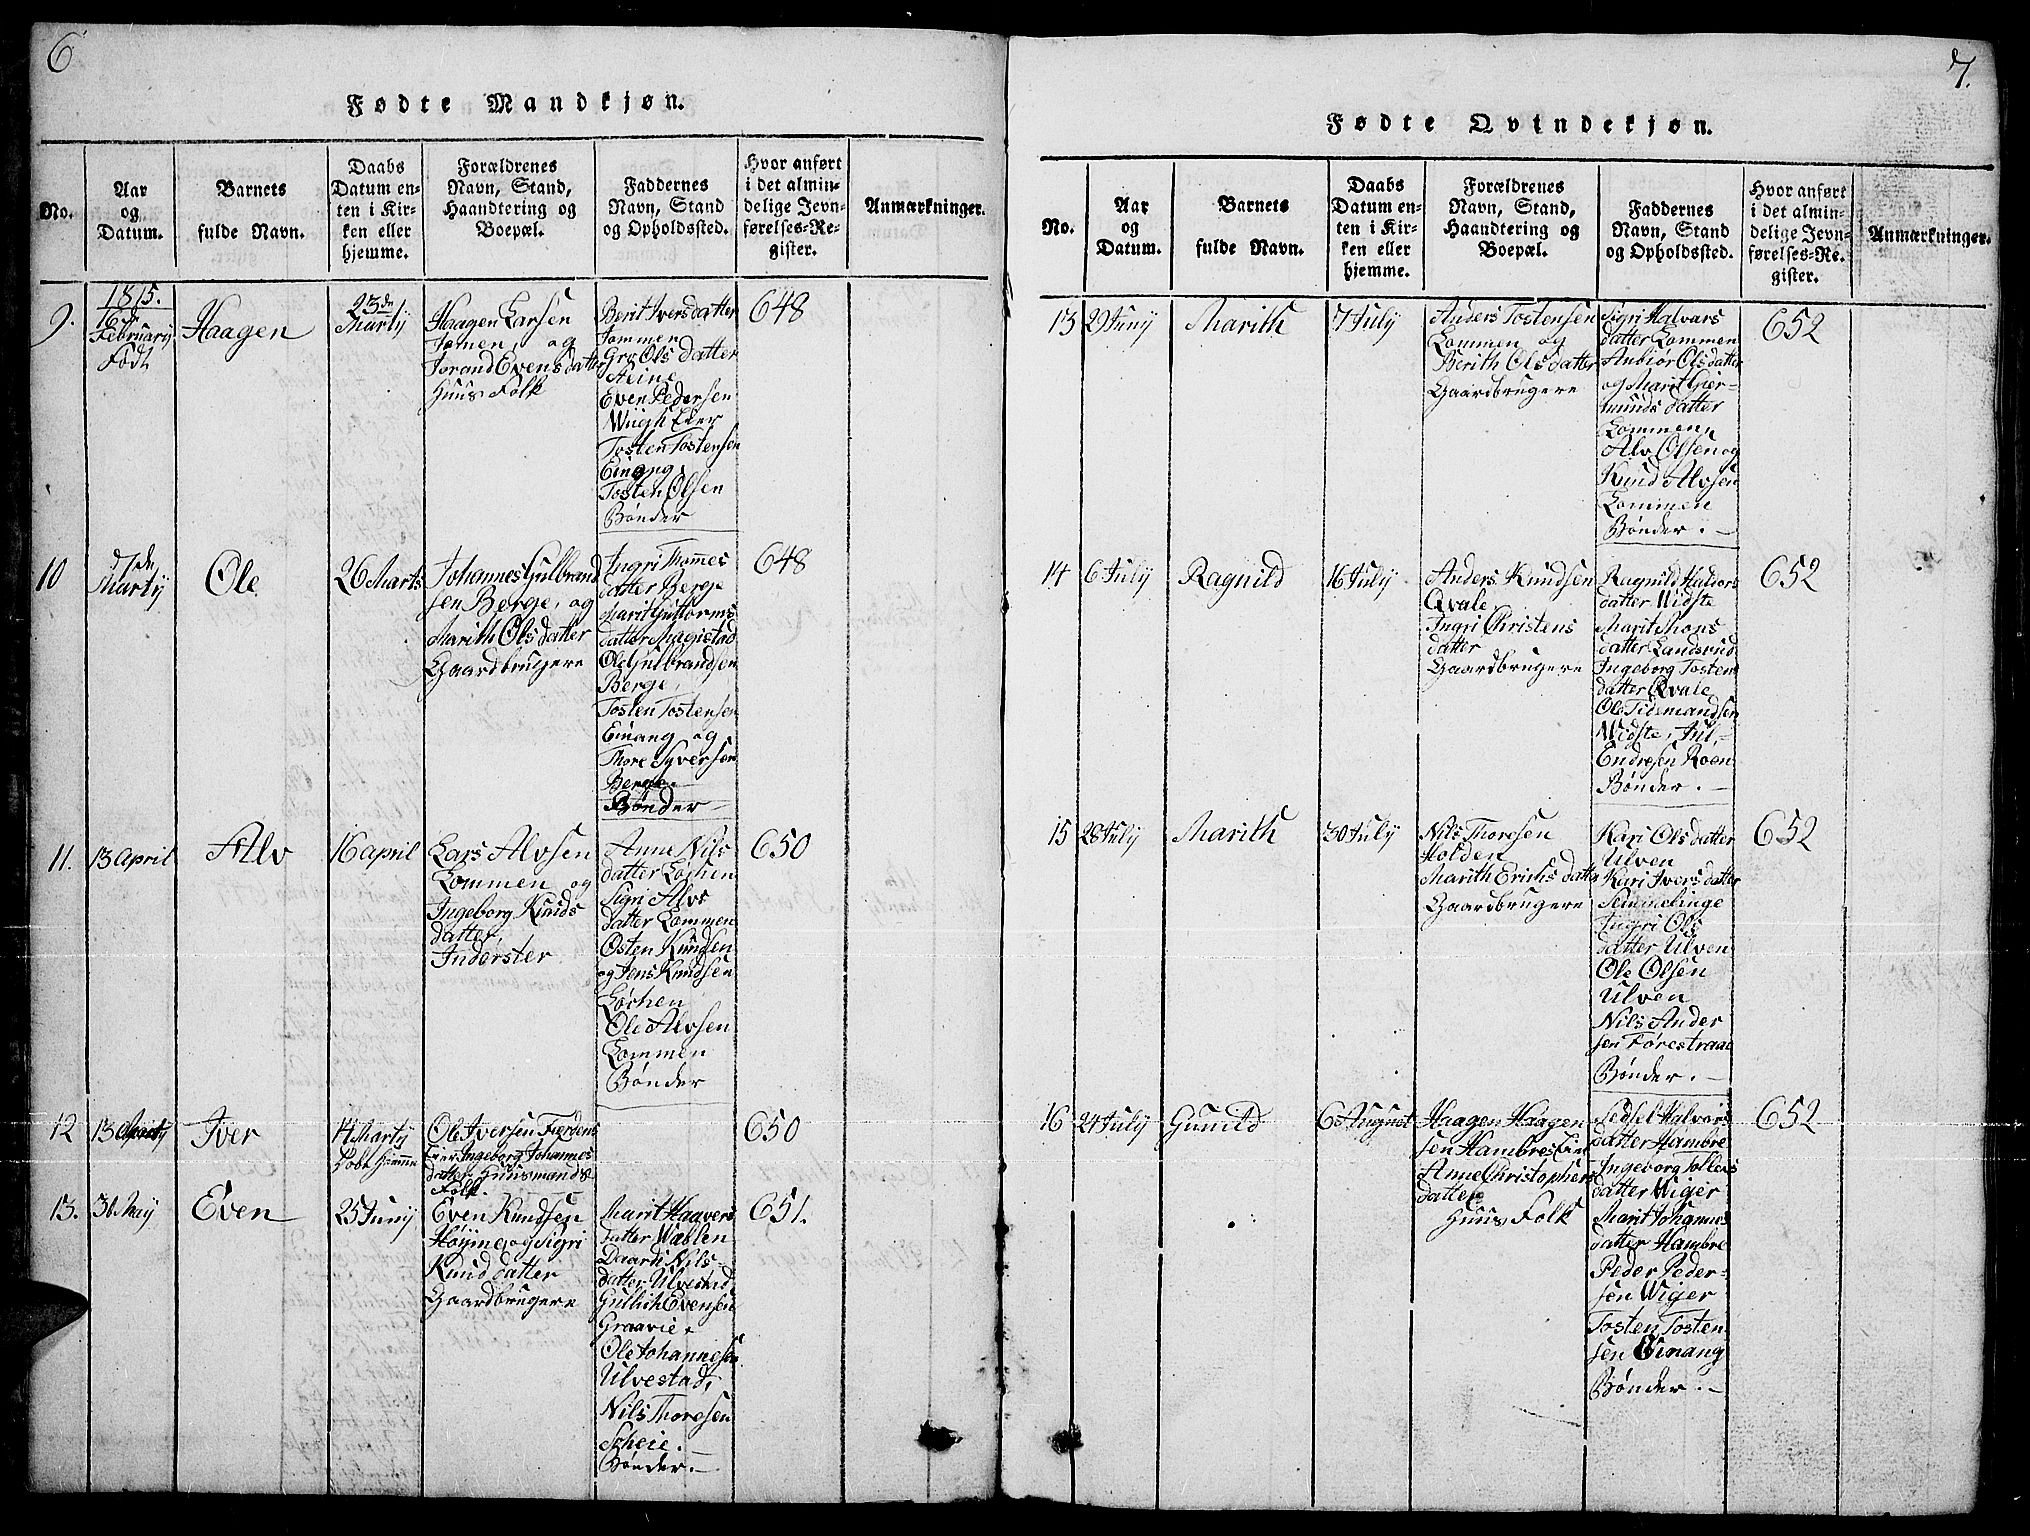 6
Fødte Mandkjøn.
No.
Aar
og
Datum.
Barnets
fulde Navn.
Daabs
Datum en-
ten i Kir-
ken eller
hjemme.
Forældrenes
Navn, Stand,
Haandtering og
Boepæl.
Faddernes
Navn, Stand
og Opholdssted.
Hvor anført
i det almin-
delige Jevn-
førelses-Re-
gister.
Anmærkninger.
9.
1815.
16de
February
Født
Haagen
23de
Marty
Haagen Larsen
Jomen, og
Jorand Evensdatter
Huus Folk
Berit Iversdatter
Jommen
Gro Olsdatter
Steine
Even Pedersen
Tosten Tostensen
Einang
Tosten Olsen
Bønder
648
10
7de
Marty
Ole
26 Marts
Johannes Gulbrand
sen Berge, og
Marith Olsdatter
Gaardbrugere
Ingri Thomes
datter Berge
Marit Guttorms
datter Magistad
Ole Gulbrandsen
Berge,
Tosten Tostensen
Einang og
Thore Syversen
Berge.
Bønder
648
11.
13 April
Alv
16 april
Lars Alvsen
Lommen og
Ingeborg Knuds
datter,
Inderster
Anne Nils
datter Løchen
Sigri Alvs
datter Lommen
Osten Knudsen
og Jens Knudsen
Løchen
Ole Alvsen
Lommen
Bønder
650
12
13
Iver
14 Marty
Døbt Hiemme
Ole Iversen Fierdens
Eier Ingeborg Johannes
datter Huusmands
Folk.
650
13.
30 May
Even
25 Juny
Even Knudsen
Høyme, og Sigri
Knud datter
Gaardbrugere
Marit Haavers
datter Wablen
Daardi Nils-
datter Ulvestad
Gullich Evensen
Graavie.
Ole Johannesen
Ulvestad,
Nils Thoresen
Scheie.
Bønder.
651.
7.
Fødte Qvindekjøn.
No.
Aar
og
Datum.
Barnets
fulde Navn.
Daabs
Datum en-
ten i Kir-
ken eller
hjemme.
Forældrenes
Navn, Stand,
Haandtering og
Boepæl.
Faddernes
Navn, Stand
og Opholdssted.
Hvor anført
i det almin-
delige Jevn-
førelses-Re-
gister.
Anmærkninger.
13
29 Juny
Marith
7 July
Anders Tostensen
Lommen og
Berith Olsdatter
Gaardbrugere
Sigri Halvars
datter Lommen
Anbiør Olsdatter
og Marit Gier-
munds datter
Lommen,
Alv Olsen og
Knud Alvsen
Lommen
Bønder.
652
14
6 July
Ragnild
16 July
Anders Knudsen
Qvale
Ingri Christens
datter
Gaardbrugere
Ragnild Halvors
datter Widste
Marit Mons
datter Landsrud
Ingeborg Tostens
datter Qvale
Ole Tidemandsen
Widste, Jul.
Endresen Roen
Bønder.
652
15
28 July
Marith
30 July
Nils Thoresen
Holden
Marith Erichsdatter
Gaardbrugere
Kari Olsdatter
Ulven
Kari Iversdatter
Semmelinge
Ingri Ols
datter Ulven
Ole Olsen
Ulven
Nils Ander
sen Førestraae
Bønder.
652
16
24 July
Gunild
6 August
Haagen Haagen
sen Hambres Eie
Anne Christophers
datter
Huus Folk
Sedsel Halvors
datter Hambre
Ingeborg Tollevs
datter Wiger
Marit Johannes
datter Hambre
Peder Peder-
sen Wiger
Tosten Tosten
sen Einang
Bønder.
652